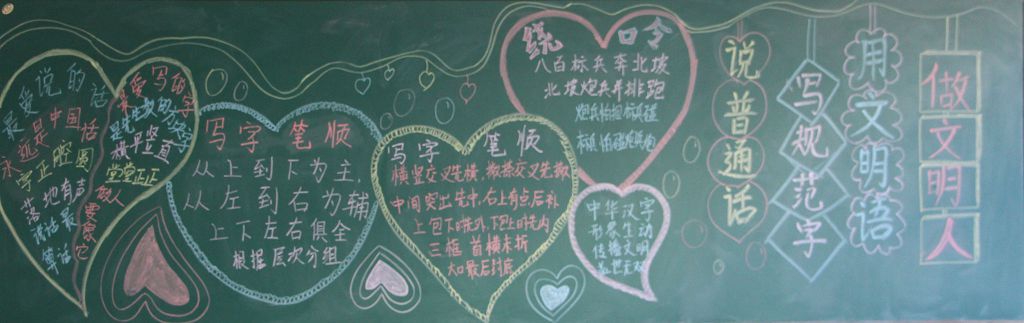 最爱说的话
永远是中国话
字正腔圆
落地有声
说话最
算话
最爱写的字
方块字
横平竖直
堂堂正正
做人
写字 笔顺
从上到下为主,
从左到右为辅
上下左右俱全
根据层次分组
写字 笔顺
横竖交叉先横,撇捺交叉先撇
中间突出先中,右上有点后补
上包下时先外,下包上时先内
三框首横末折
大口最后封底
绕 口令
八百标兵奔北坡
北坡炮兵并排跑
炮兵怕把标兵碰
标兵怕碰炮兵炮
中华汉字
形象生动
传播文明
说普通话
写规范字
用文明语
做文明人